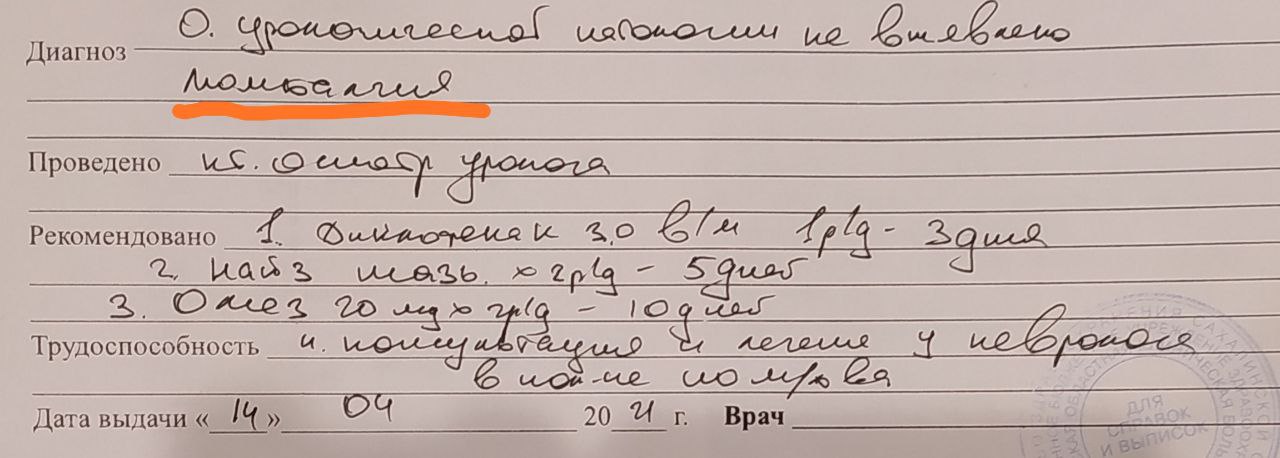 Диагноз О. урологической патологии не выявлено
Люмбалгия
Проведено кт. осмотр уролога
Рекомендовано 1. Диклофенак 3.0 в/м 1р/д - 3 дня
2. Найз мазь. x 2р/д - 5 дней
3. Омез 20 мг x 2р/д - 10 дней
Трудоспособность н. консультация и лечение у невролога
в пол-ке по м/ж
Дата выдачи «14» 04 2021 г. Врач
ДЛЯ
СПРАВОК
И ВЫПИСОК